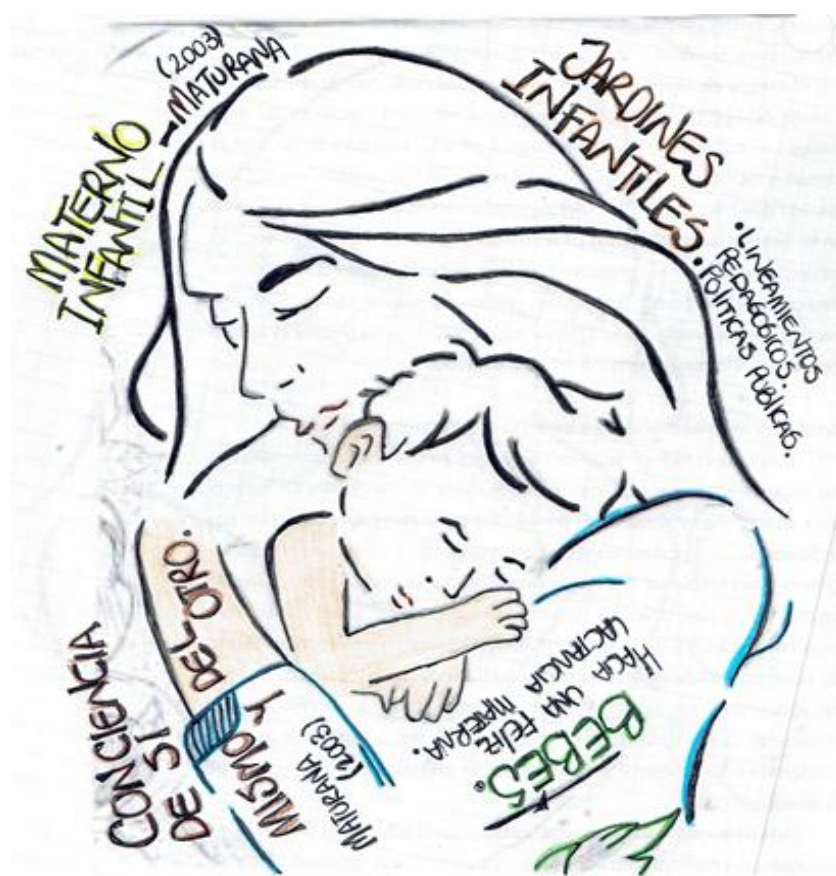 MATERNO
INFANTIL -
(2003)
MATURANA
JARDINES
INFANTILES.
• LINEAMIENTOS
PEDAGÓGICOS.
• POLÍTICAS PÚBLICAS.
CONCIENCIA
DE SI
MISMO Y
DEL OTRO.
MATURANA
(2003)
BEBES.
HACIA UNA FELIZ
LACTANCIA
MATERNA.